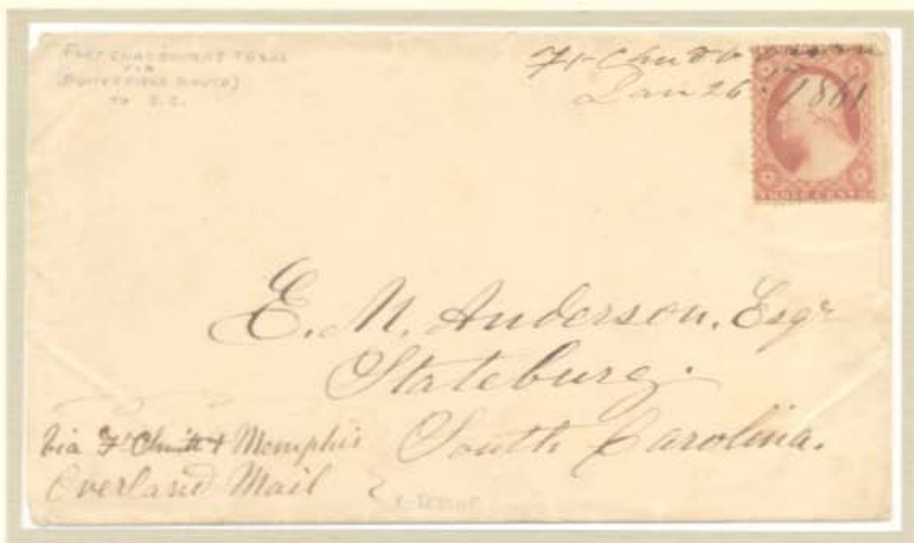 FORT CHADBOURNE TEXAS
VIA
(BUTTERFIELD ROUTE)
TO S.C.
Ft Chadbourne
Jan 26th 1861
THREE CENTS
E. M. Anderson, Esqr
Stateburg.
South Carolina.
Via Ft Smith & Memphis
Overland Mail